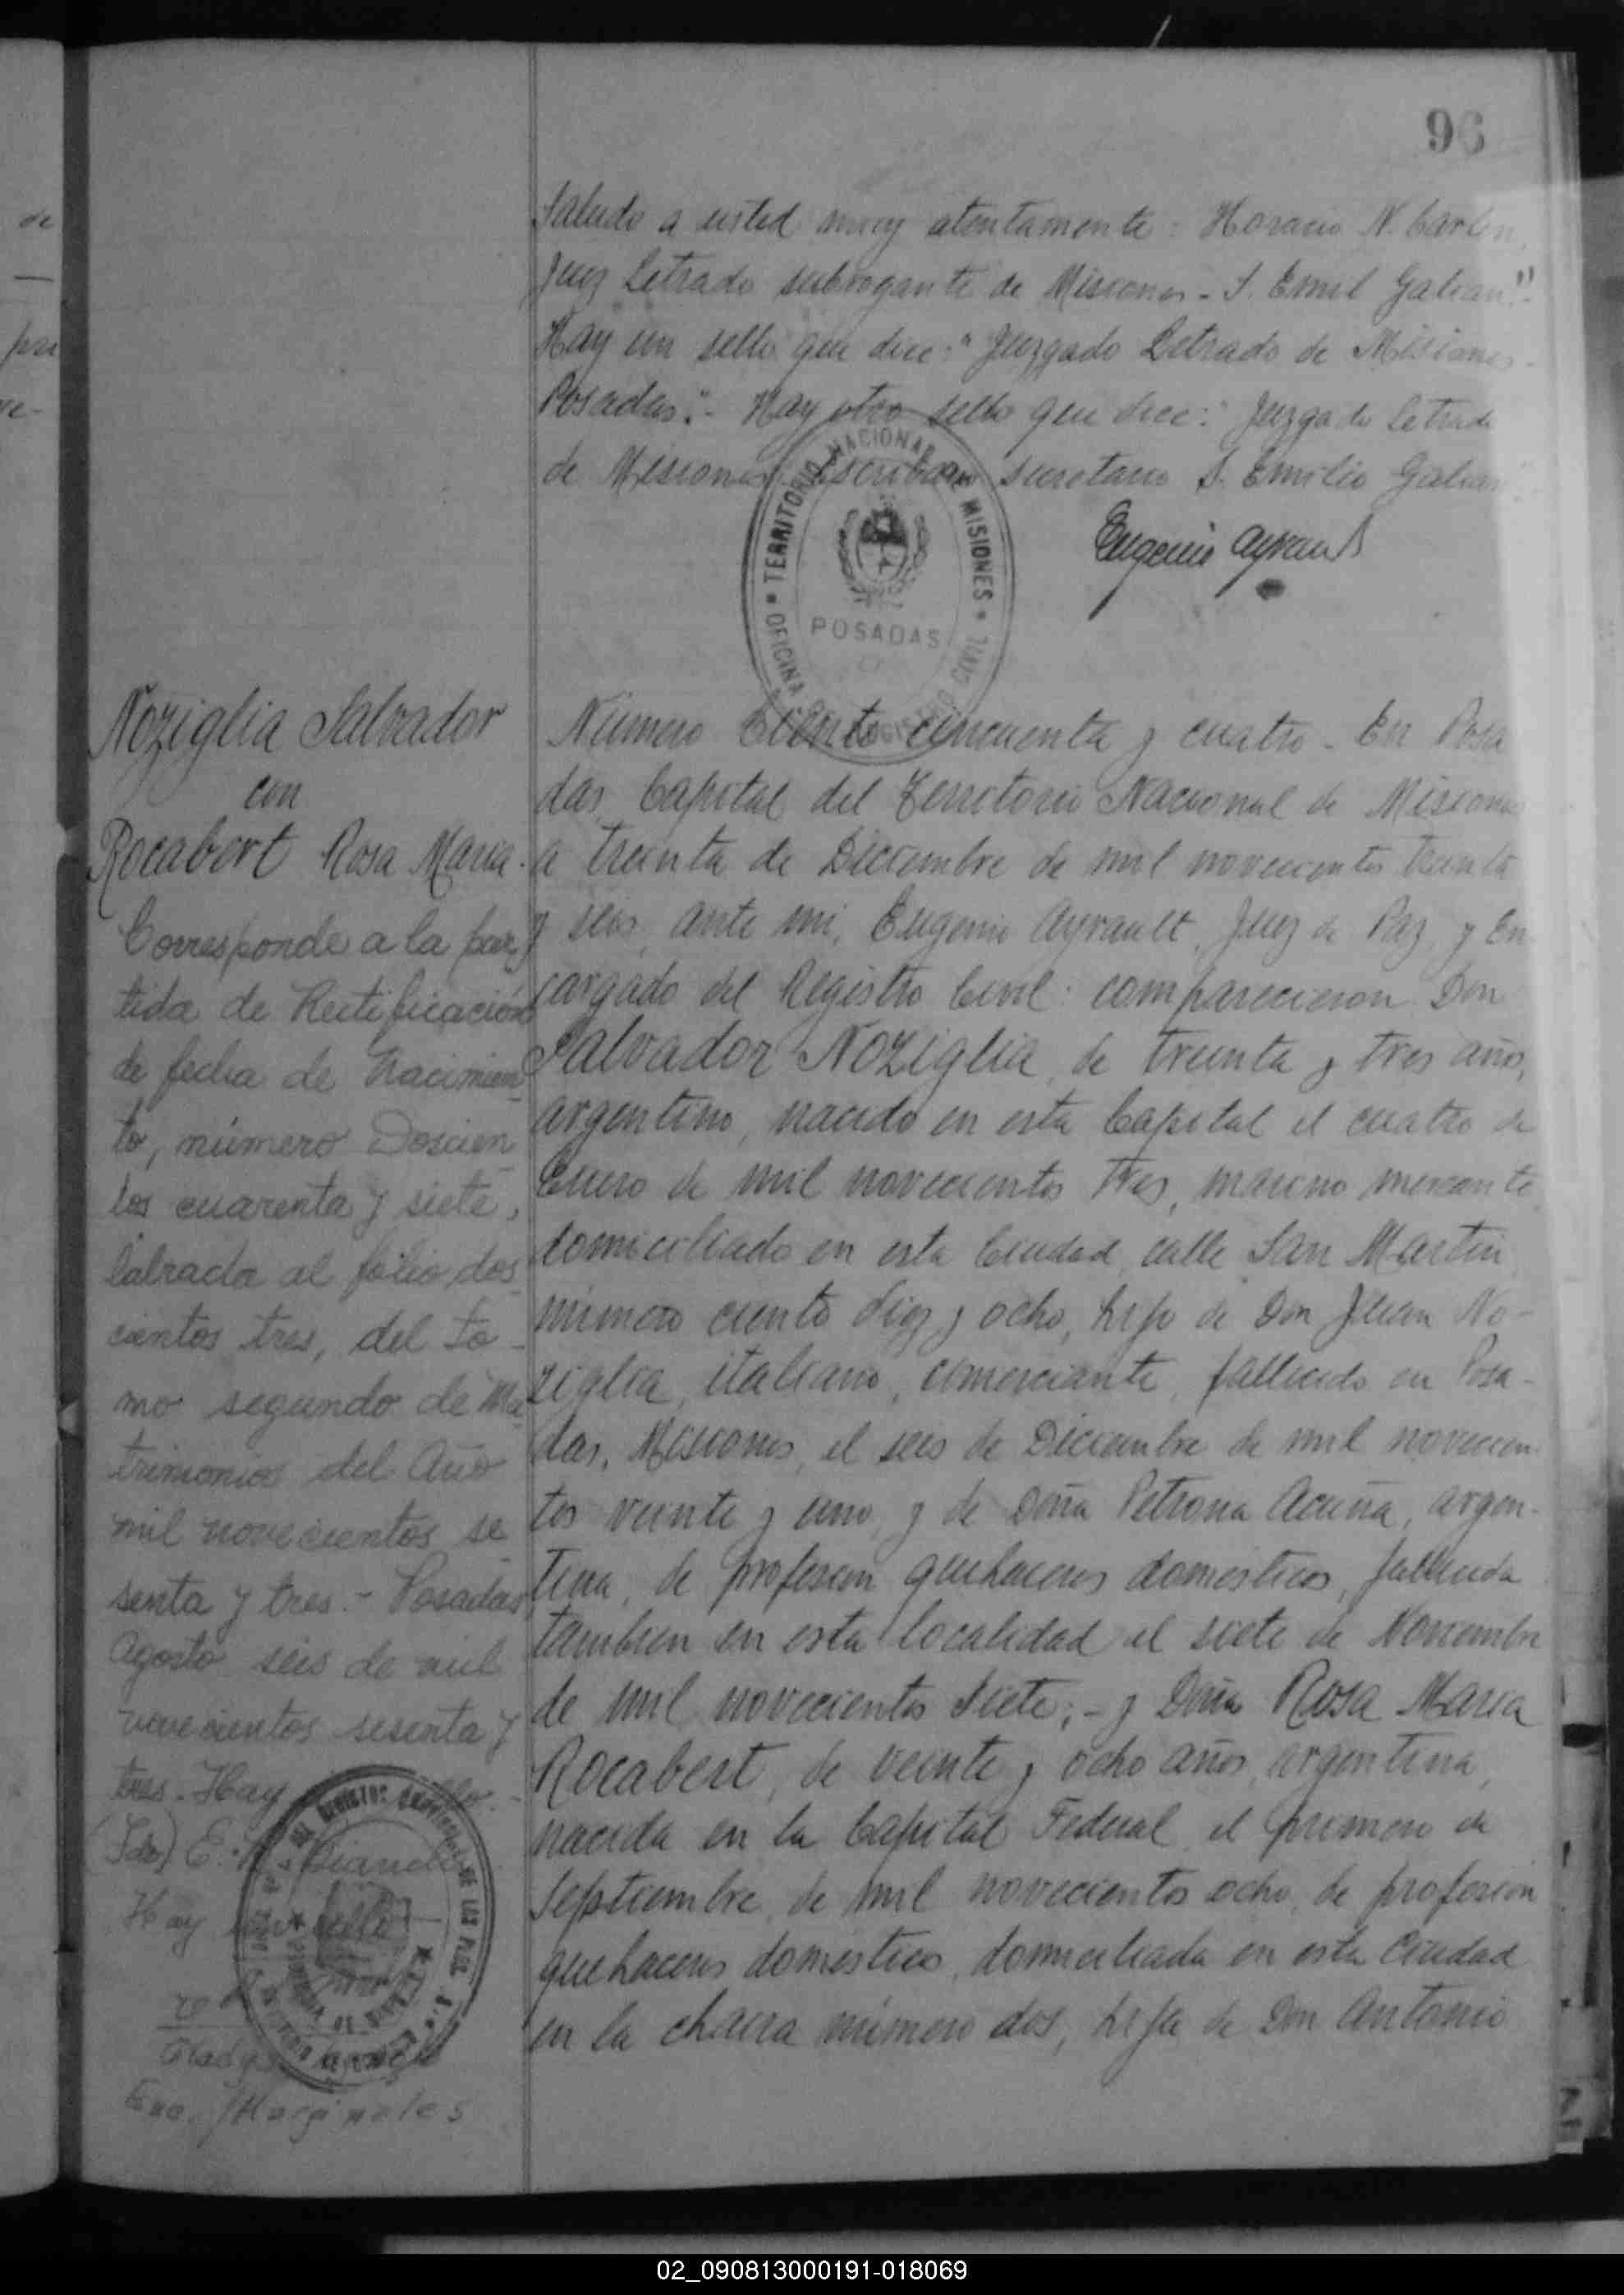 96
Saludo a usted muy atentamente: Horacio N.
Juez Letrado subrogante de Misiones - S. Emil Galian".-
Hay un sello que dice: "Juzgado Letrado de Misiones -
Posadas".- Hay otro sello que dice: "Juzgado Letrado
de Misiones - Escribano secretario S. Emilio Galian
Eugenio Ayrault
TERRITORIO NACIONAL DE MISIONES
OFICINA DE REGISTRO CIVIL
POSADAS
Noziglia Salvador
con
Rocabert Rosa Maria.
Corresponde a la par
tida de Rectificación
de fecha de Nacimien
to, número Doscien
tos cuarenta y siete,
labrada al folio dos
cientos tres, del to-
mo segundo de Ma
trimonios del Año
mil novecientos se
senta y tres.- Posadas,
Agosto seis de mil
novecientos sesenta y
tres. Hay sello.-
(Fdo) E.
Hay un sello
Gladys
Enc. Marginales
Número Ciento cincuenta y cuatro - En Posa
das, Capital del Territorio Nacional de Misiones
a treinta de Diciembre de mil novecientos treinta
y seis, ante mi, Eugenio Ayrault, Juez de Paz, y En
cargado del Registro Civil: comparecieron Don
Salvador Noziglia, de treinta y tres años,
argentino, nacido en esta Capital el cuatro de
Enero de mil novecientos tres, marino mercante
domiciliado en esta Ciudad, calle San Martin
número ciento diez y ocho, hijo de Don Juan No-
ziglia, italiano, comerciante, fallecido en Posa-
das, Misiones, el seis de Diciembre de mil novecien-
tos veinte y uno, y de Doña Petrona Acuña, argen-
tina, de profesion quehaceres domesticos, fallecida
tambien en esta localidad el siete de Noviembre
de mil novecientos siete;- y Doña Rosa Maria
Rocabert, de veinte y ocho años, argentina,
nacida en la Capital Federal el primero de
Septiembre de mil novecientos ocho, de profesión
quehaceres domesticos, domiciliada en esta Ciudad
en la chacra número dos, hija de Don Antonio
02_090813000191-018069